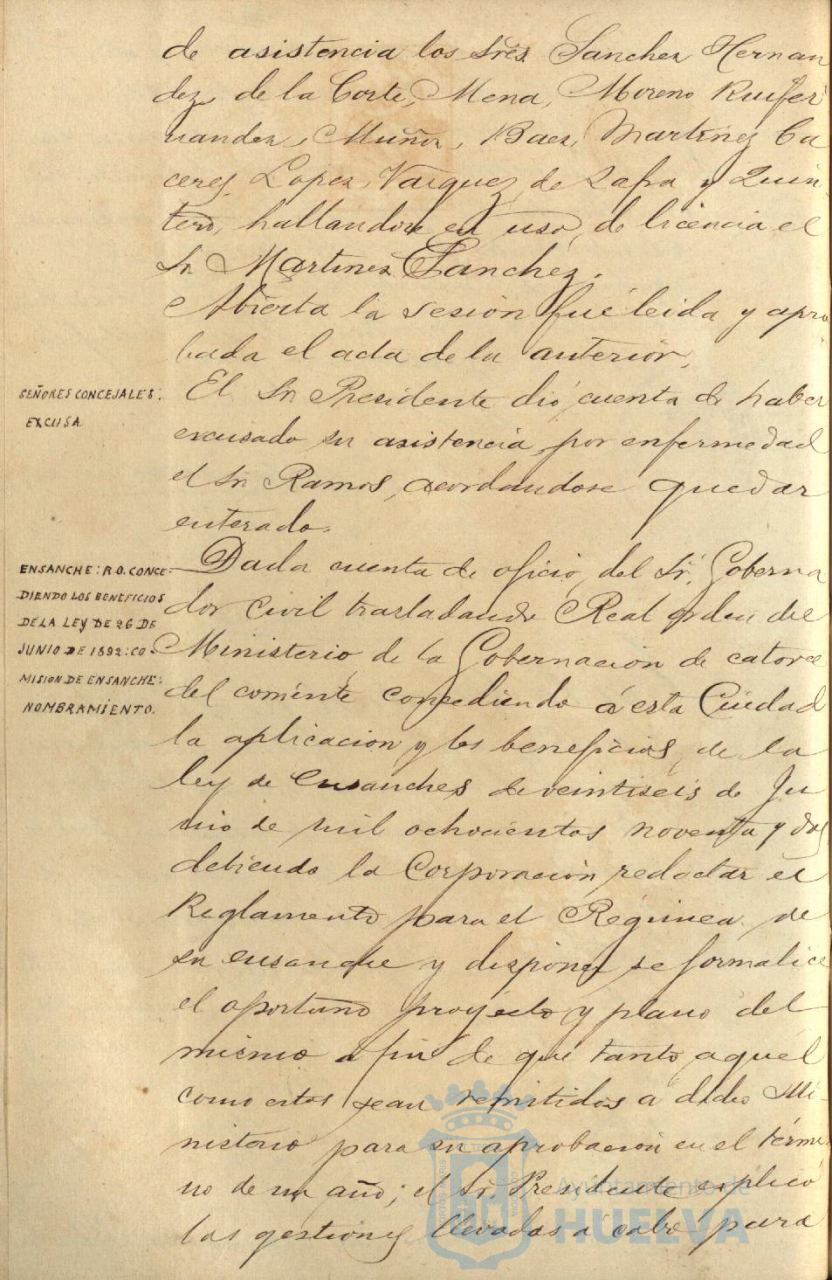 de asistencia los Sres Sanchez Hernan
dez, de la Corte, Mena, Moreno Ruifer
nandez, Muñoz, Baez, Martinez Ca
ceres, Lopez, Vazquez, de Zafra y Quin-
tero, hallandose en uso, de licencia el
Sr Martinez Sanchez.
Abierta la sesión fué leida y apro
bada el acta de la anterior.
SEÑORES CONCEJALES:
EXCUSA
El Sr Presidente dió cuenta de haber
excusado su asistencia por enfermedad
el Sr Ramos, acordandose quedar
enterado.
ENSANCHE: R.O. CONCE-
DIENDO LOS BENEFICIOS
DE LA LEY DE 26 DE
JUNIO DE 1892: CO-
MISION DE ENSANCHE:
NOMBRAMIENTO.
Dada cuenta de oficio, del Sr. Goberna
dor Civil trasladando Real orden del
Ministerio de la Gobernacion de catorce
del corriente concediendo á esta Ciudad
la aplicacion y los beneficios de la
ley de ensanches de veintiseis de Ju
nio de mil ochocientos noventa y dos
debiendo la Corporación redactar el
Reglamento para el Régimen de
su ensanche y disponer se formalice
el oportuno proyecto y plano del
mismo a fin de que tanto aquel
como estos sean remitidos a dicho Mi-
nisterio para su aprobación en el térmi
no de un año; el Sr. Presidente explicó
las gestiones llevadas a cabo para
Ayuntamiento de
HUELVA